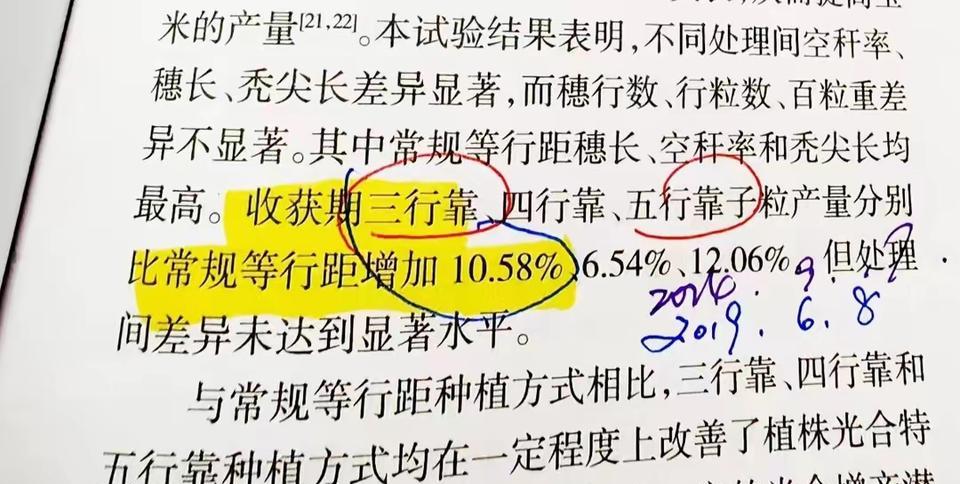 米的产量[21,22]。本试验结果表明,不同处理间空秆率、
穗长、秃尖长差异显著,而穗行数、行粒数、百粒重差
异不显著。其中常规等行距穗长、空秆率和秃尖长均
最高。收获期三行靠、四行靠、五行靠子粒产量分别
比常规等行距增加 10.58%、6.54%、12.06%,但处理
间差异未达到显著水平。
2019.6.8
与常规等行距种植方式相比,三行靠、四行靠和
五行靠种植方式均在一定程度上改善了植株光合特